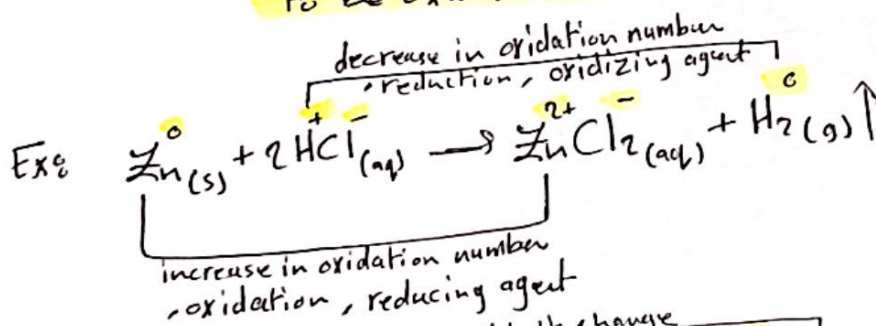 to be
decrease in oxidation number
, reduction, oxidizing agent
Ex: Zn⁰(s) + 2H⁺Cl⁻(aq) → Zn²⁺Cl₂⁻(aq) + H₂⁰(g) ↑
increase in oxidation number
, oxidation, reducing agent
the change